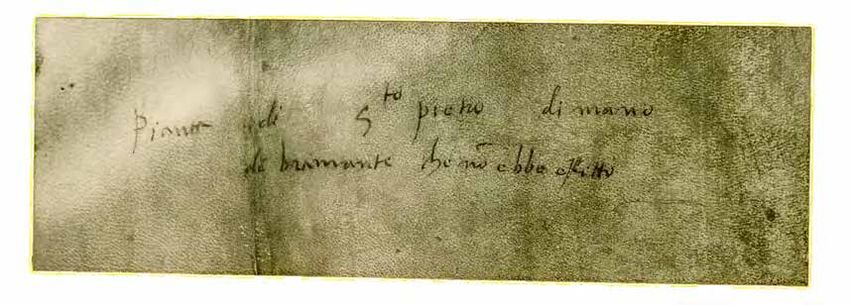 Pianta di S^to pietro di mano
de bramante che nō ebbe effetto